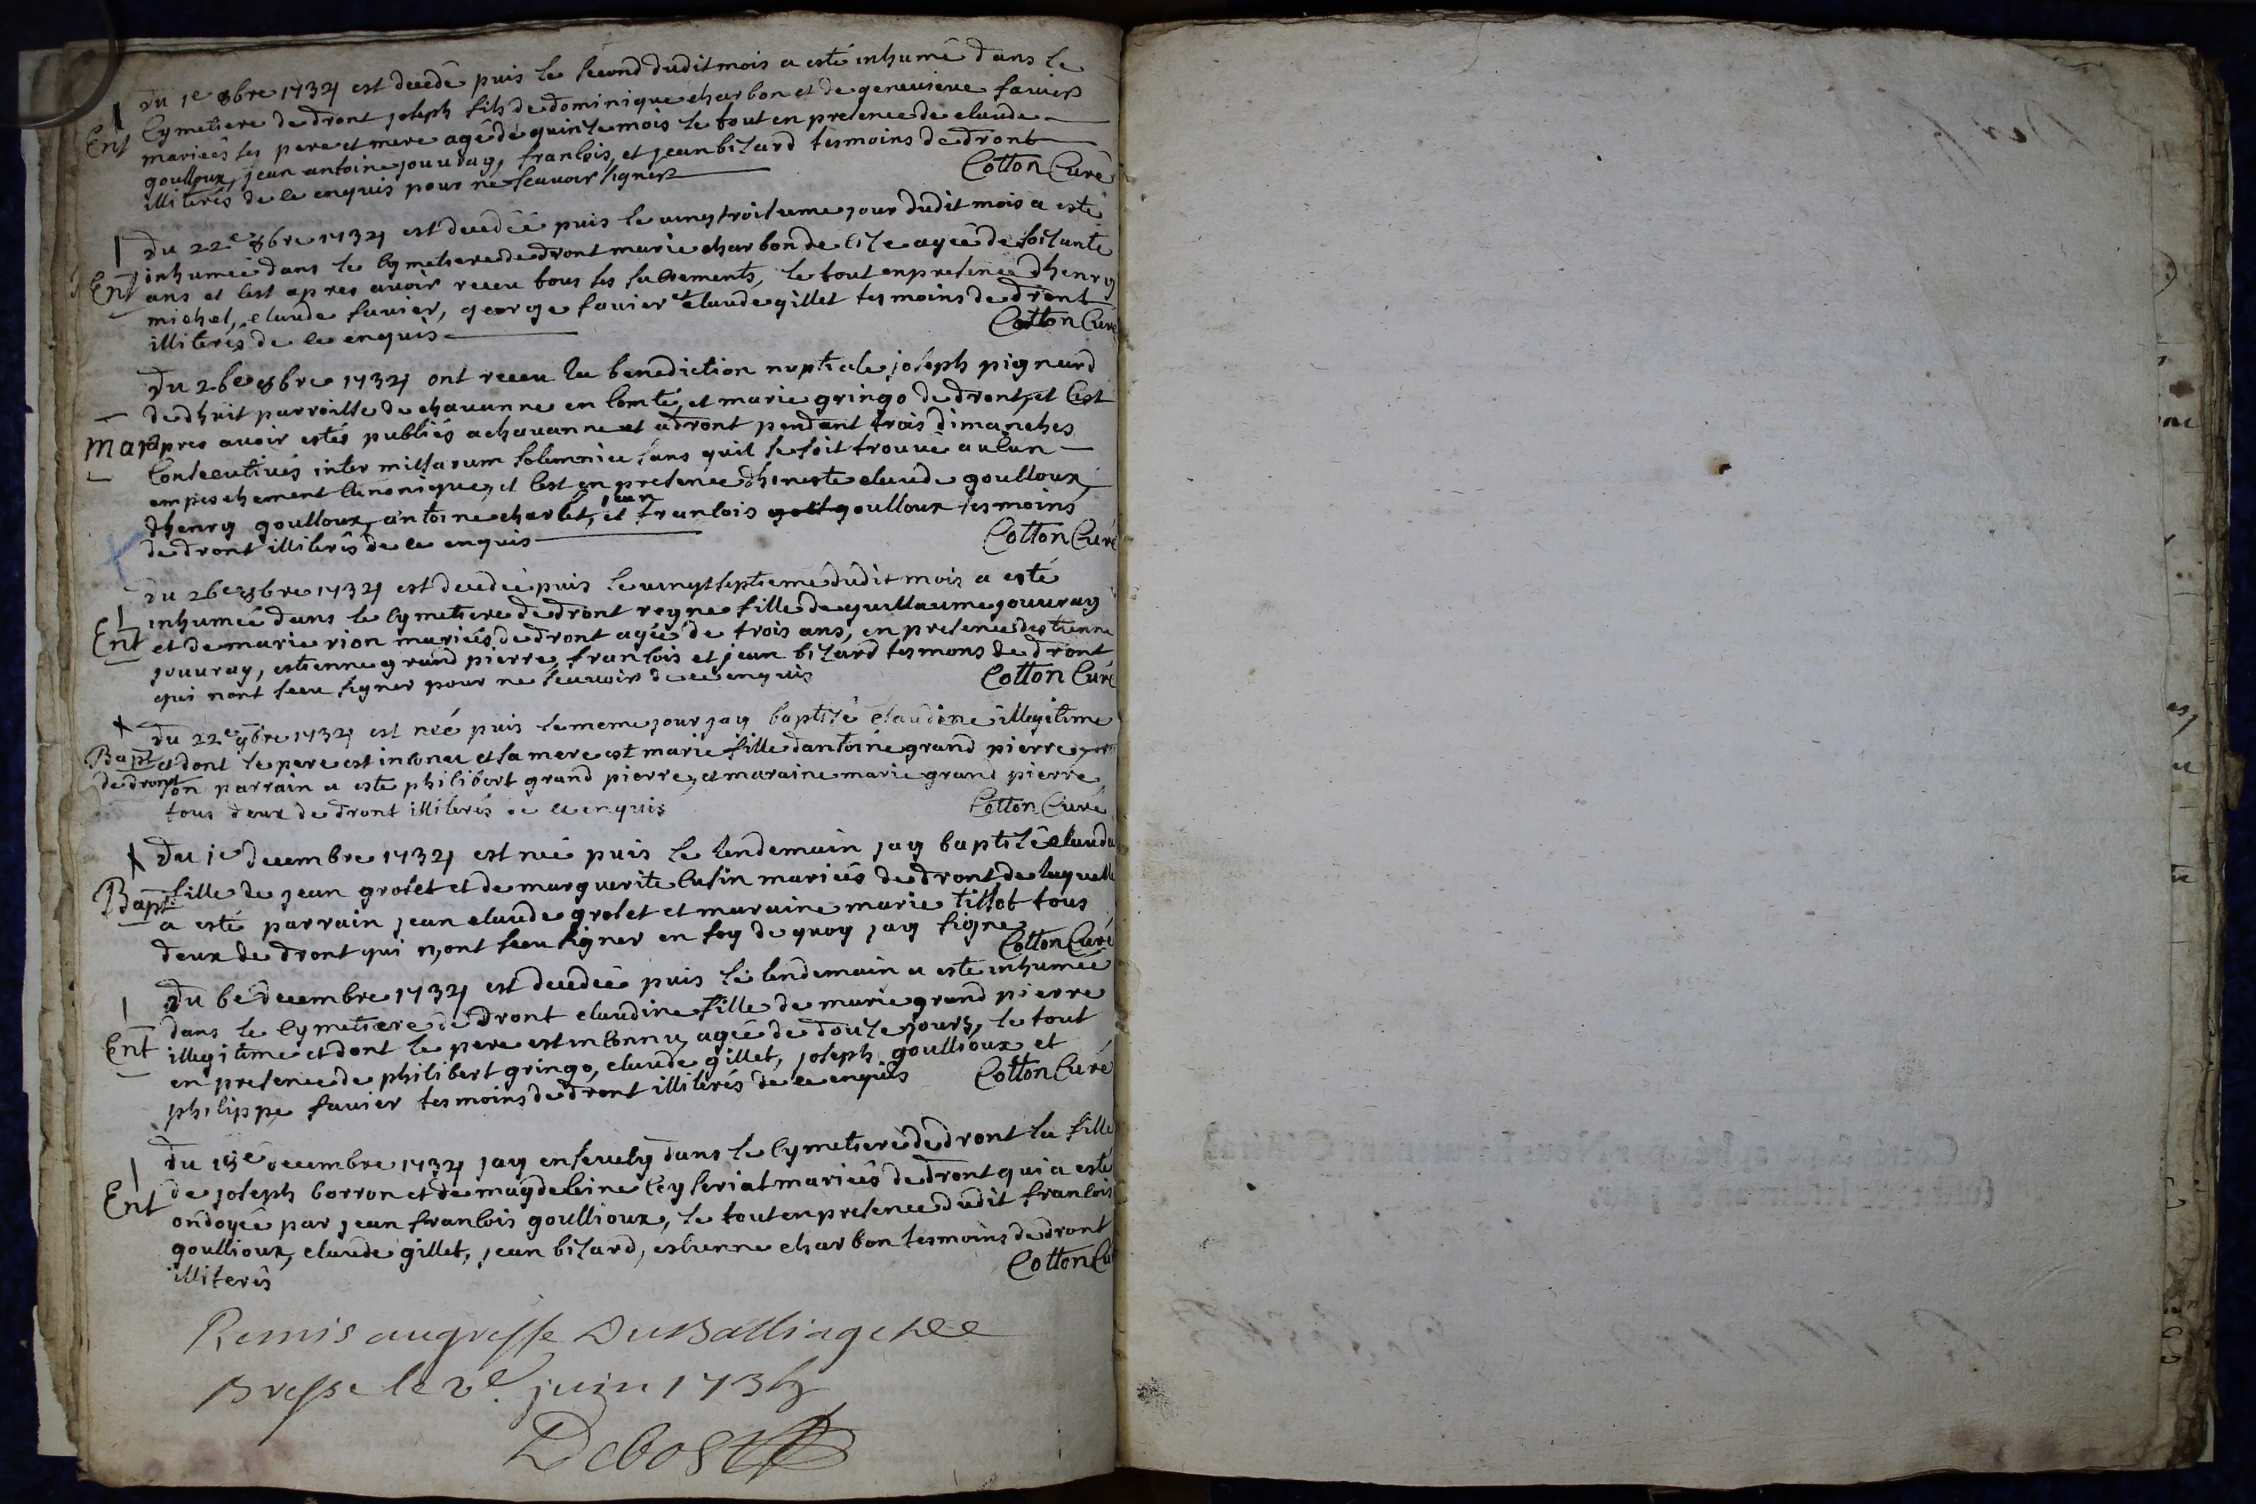 du 1e 8bre 1734 est decedé puis le second dudit mois a esté inhumé dans le
Ent cymetiere de dront joseph fils de dominique charbon et de genevieve favier
mariees ses pere et mere agé de quinze mois le tout en presence de claude
goulloux, jean antoine jouvray, francois, et jean bizard tesmoins de dront
illiterés de ce enquis pour ne scavoir signer
Cotton Curé
du 22e 8bre 1734 est decedéé puis le vingtroisieme jour dudit mois a esté
inhumeé dans le cymetiere de dront marie charbon de lize ageé de soisante
Ent ans et cest apres avoir receu tous les sacrements, le tout en presence dhenry
michel, claude favier, george favier et claude gillet tesmoins de dront
illiterés de ce enquis
Cotton Curé
du 26e 8bre 1734 ont receu la benediction nuptiale joseph pigneurd
de dhuit parroisse de chavanne en comté, et marie gringo de dront, et cest
Mar apres avoir estés publiés a chavanne et a dront pendant trois dimanches
consecutives inter missarum solemnia sans quil se soit trouvé aulcun
empeschement canonique, et cest en presence dhoneste claude goulloux,
dhenry goulloux, antoine charlet, et jean francois goulloux tesmoins
de dront illiterés de ce enquis
Cotton Curé
du 26e 8bre 1734 est decedeé puis le vingtseptieme dudit mois a esté
inhumeé dans le cymetiere de dront reyne fille de guillaume jouvray
Ent et de marie rion mariés de dront ageé de trois ans, en presence destienne
jouvray, estienne grand pierre, francois et jean bizard tesmons de dront
qui nont sceu signer pour ne scavoir de ce enquis
Cotton Curé
du 22e 9bre 1734 est néé puis le meme jour jay baptisé claudine illegitime
Bapt et dont le pere est inconeu et la mere est marie fille dantoine grand pierre
de dront son parrain a esté philibert grand pierre, et maraine marie grand pierre
tous deux de dront illiterés de ce enquis
Cotton Curé
du 1e decembre 1734 est neé puis le lendemain jay baptisé clauda
Bapt. fille de jean groset et de marguerite cusin mariés de dront de laquelle
a esté parrain jean claude groset et maraine marie tillot tous
deux de dront qui n,ont sceu signer en foy de quoy jay signe
Cotton Curé
du 6e decembre 1734 est decedeé puis le lendemain a esté inhumeé
dans le cymetiere de dront claudine fille de marie grand pierre
Ent illegitime et dont le pere est inconnu, ageé de douze jours, le tout
en presence de philibert gringo, claude gillet, joseph goullioux et
philippe favier tesmoins de dront illiterés de ce enquis
Cotton Curé
du 18e decembre 1734 jay ensevely dans le cymetiere de dront la fille
Ent de joseph borron et de magdeleine ceyseriat mariés de dront qui a esté
ondoyeé par jean francois goullioux, le tout en presence dudit francois
goullioux, claude gillet, jean bizard, estienne charbon tesmoins de dront
illiterés
Cotton Cu
Remis au greffe Du Balliage de
Bresse le 2e. juin 1735
Debost